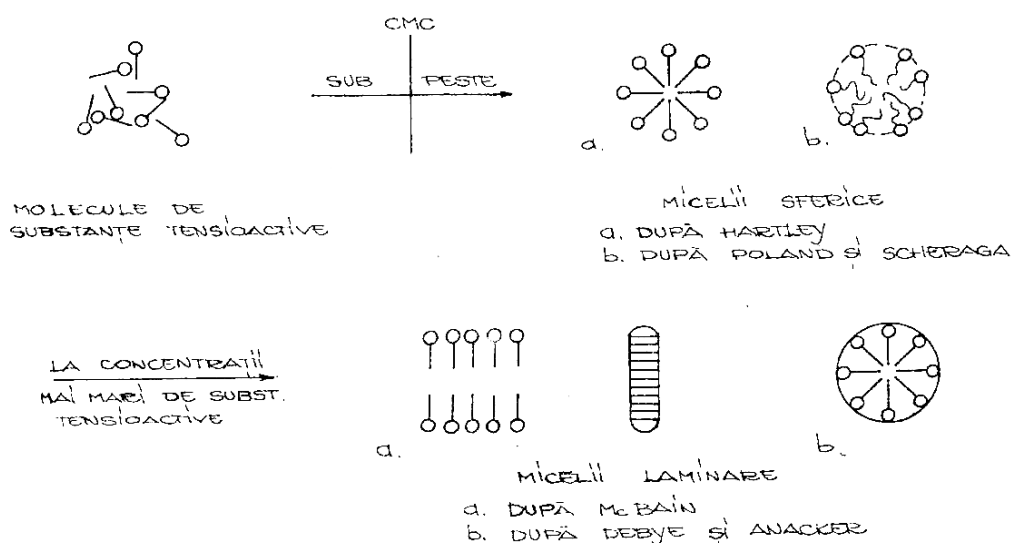 CMC
SUB PESTE
a. b.
MOLECULE DE
SUBSTANȚE TENSIOACTIVE
MICELII SFERICE
a. DUPĂ HARTLEY
b. DUPĂ POLAND ȘI SCHERAGA
LA CONCENTRAȚII
MAI MARI DE SUBST.
TENSIOACTIVE
a. b.
MICELII LAMINARE
a. DUPĂ McBAIN
b. DUPĂ DEBYE ȘI ANACKER